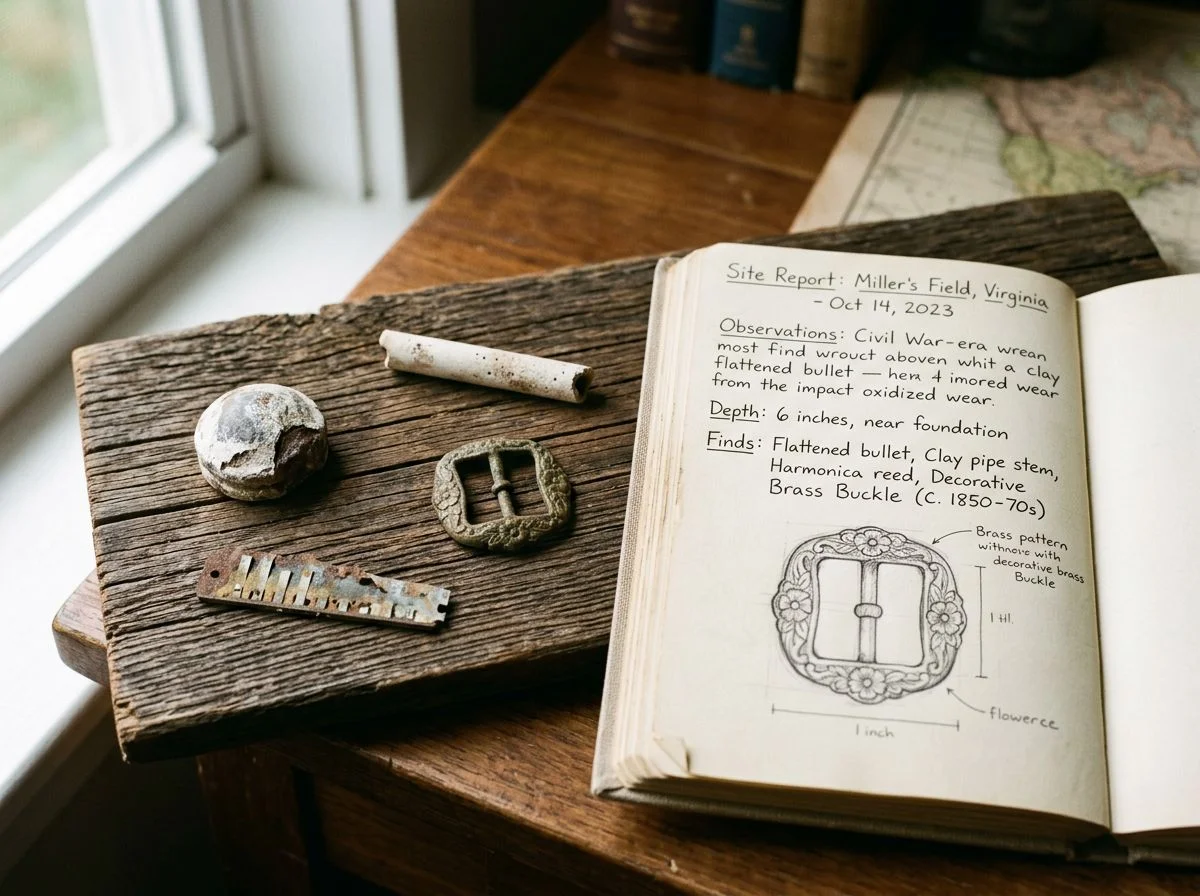 Site Report: Miller's Field, Virginia
- Oct 14, 2023
Observations: Civil War-era wrean
most find wrouct aboven whit a clay
flattened bullet — hera 4 imored wear
from the impact oxidized wear.
Depth: 6 inches, near foundation
Finds: Flattened bullet, Clay pipe stem,
Harmonica reed, Decorative
Brass Buckle (C. 1850-70s)
Brass pattern
with
decorative brass
Buckle
1
1 inch
flowerce